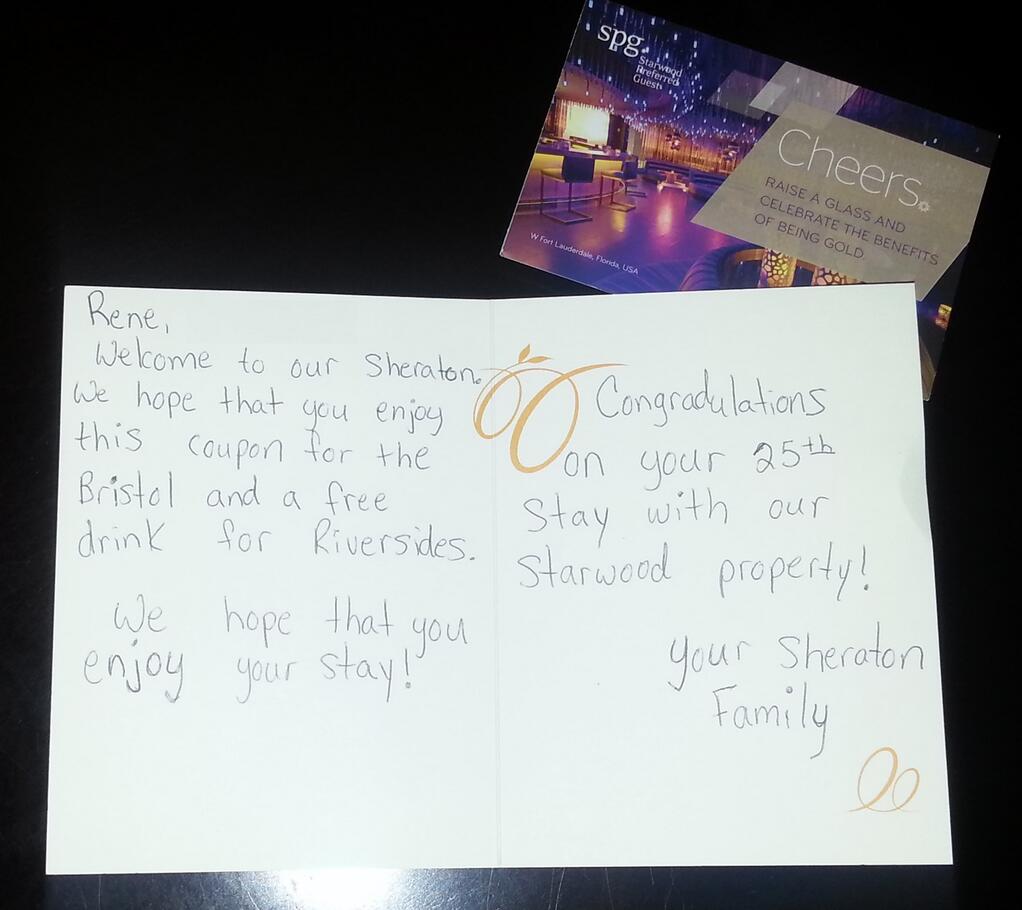 spg.
Starwood
Preferred
Guest
Cheers.
RAISE A GLASS AND
CELEBRATE THE BENEFITS
OF BEING GOLD.
W Fort Lauderdale, Florida, USA
Rene,
Welcome to our Sheraton.
We hope that you enjoy
this coupon for the
Bristol and a free
drink for Riversides.
We hope that you
enjoy your stay!
Congradulations
on your 25th
Stay with our
Starwood property!
Your Sheraton
Family